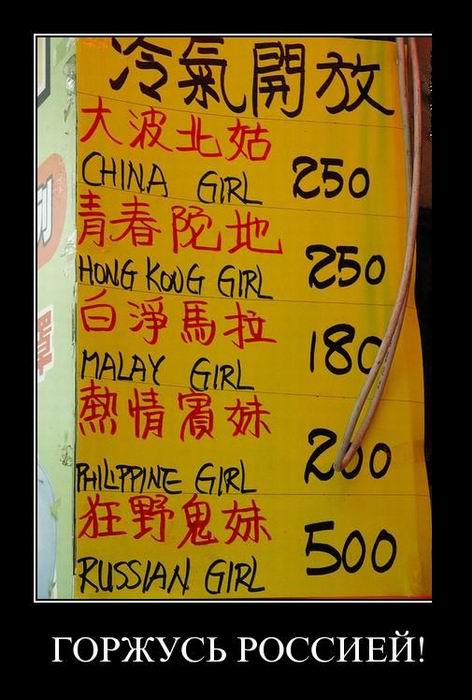 冷氣開放
大波北姑
CHINA GIRL 250
青春陀地
HONG KOUG GIRL 250
白淨馬拉
MALAY GIRL 180
熱情賓妹
PHILIPPINE GIRL 200
狂野鬼妹
RUSSIAN GIRL 500
ГОРЖУСЬ РОССИЕЙ!